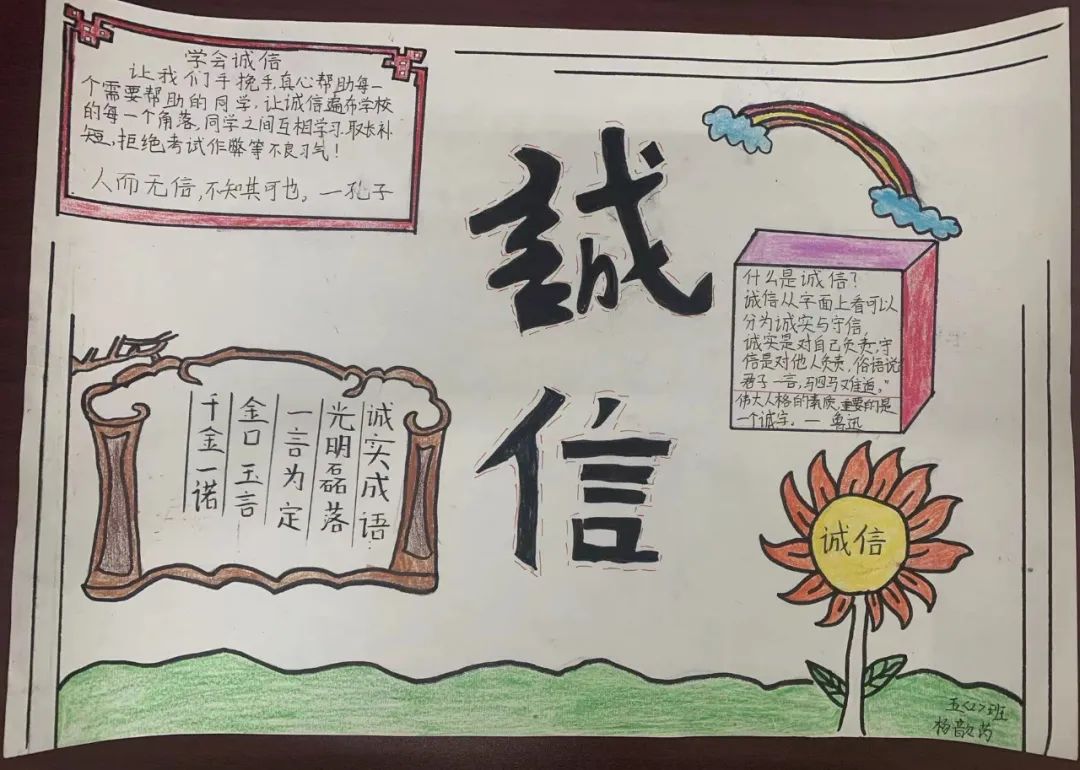 学会诚信
让我们手挽手,真心帮助每一
个需要帮助的同学,让诚信遍布学校
的每一个角落,同学之间互相学习.取长补
短,拒绝考试作弊等不良习气!
人而无信,不知其可也。一孔子
誠信
什么是诚信?
诚信从字面上看可以
分为诚实与守信,
诚实是对自己负责,守
信是对他人负责,俗语说
君子一言,驷马难追。"
伟大人格的素质,重要的是
一个诚字。一鲁迅
诚实成语
光明磊落
一言为定
金口玉言
千金一诺
诚信
五<2>班
杨